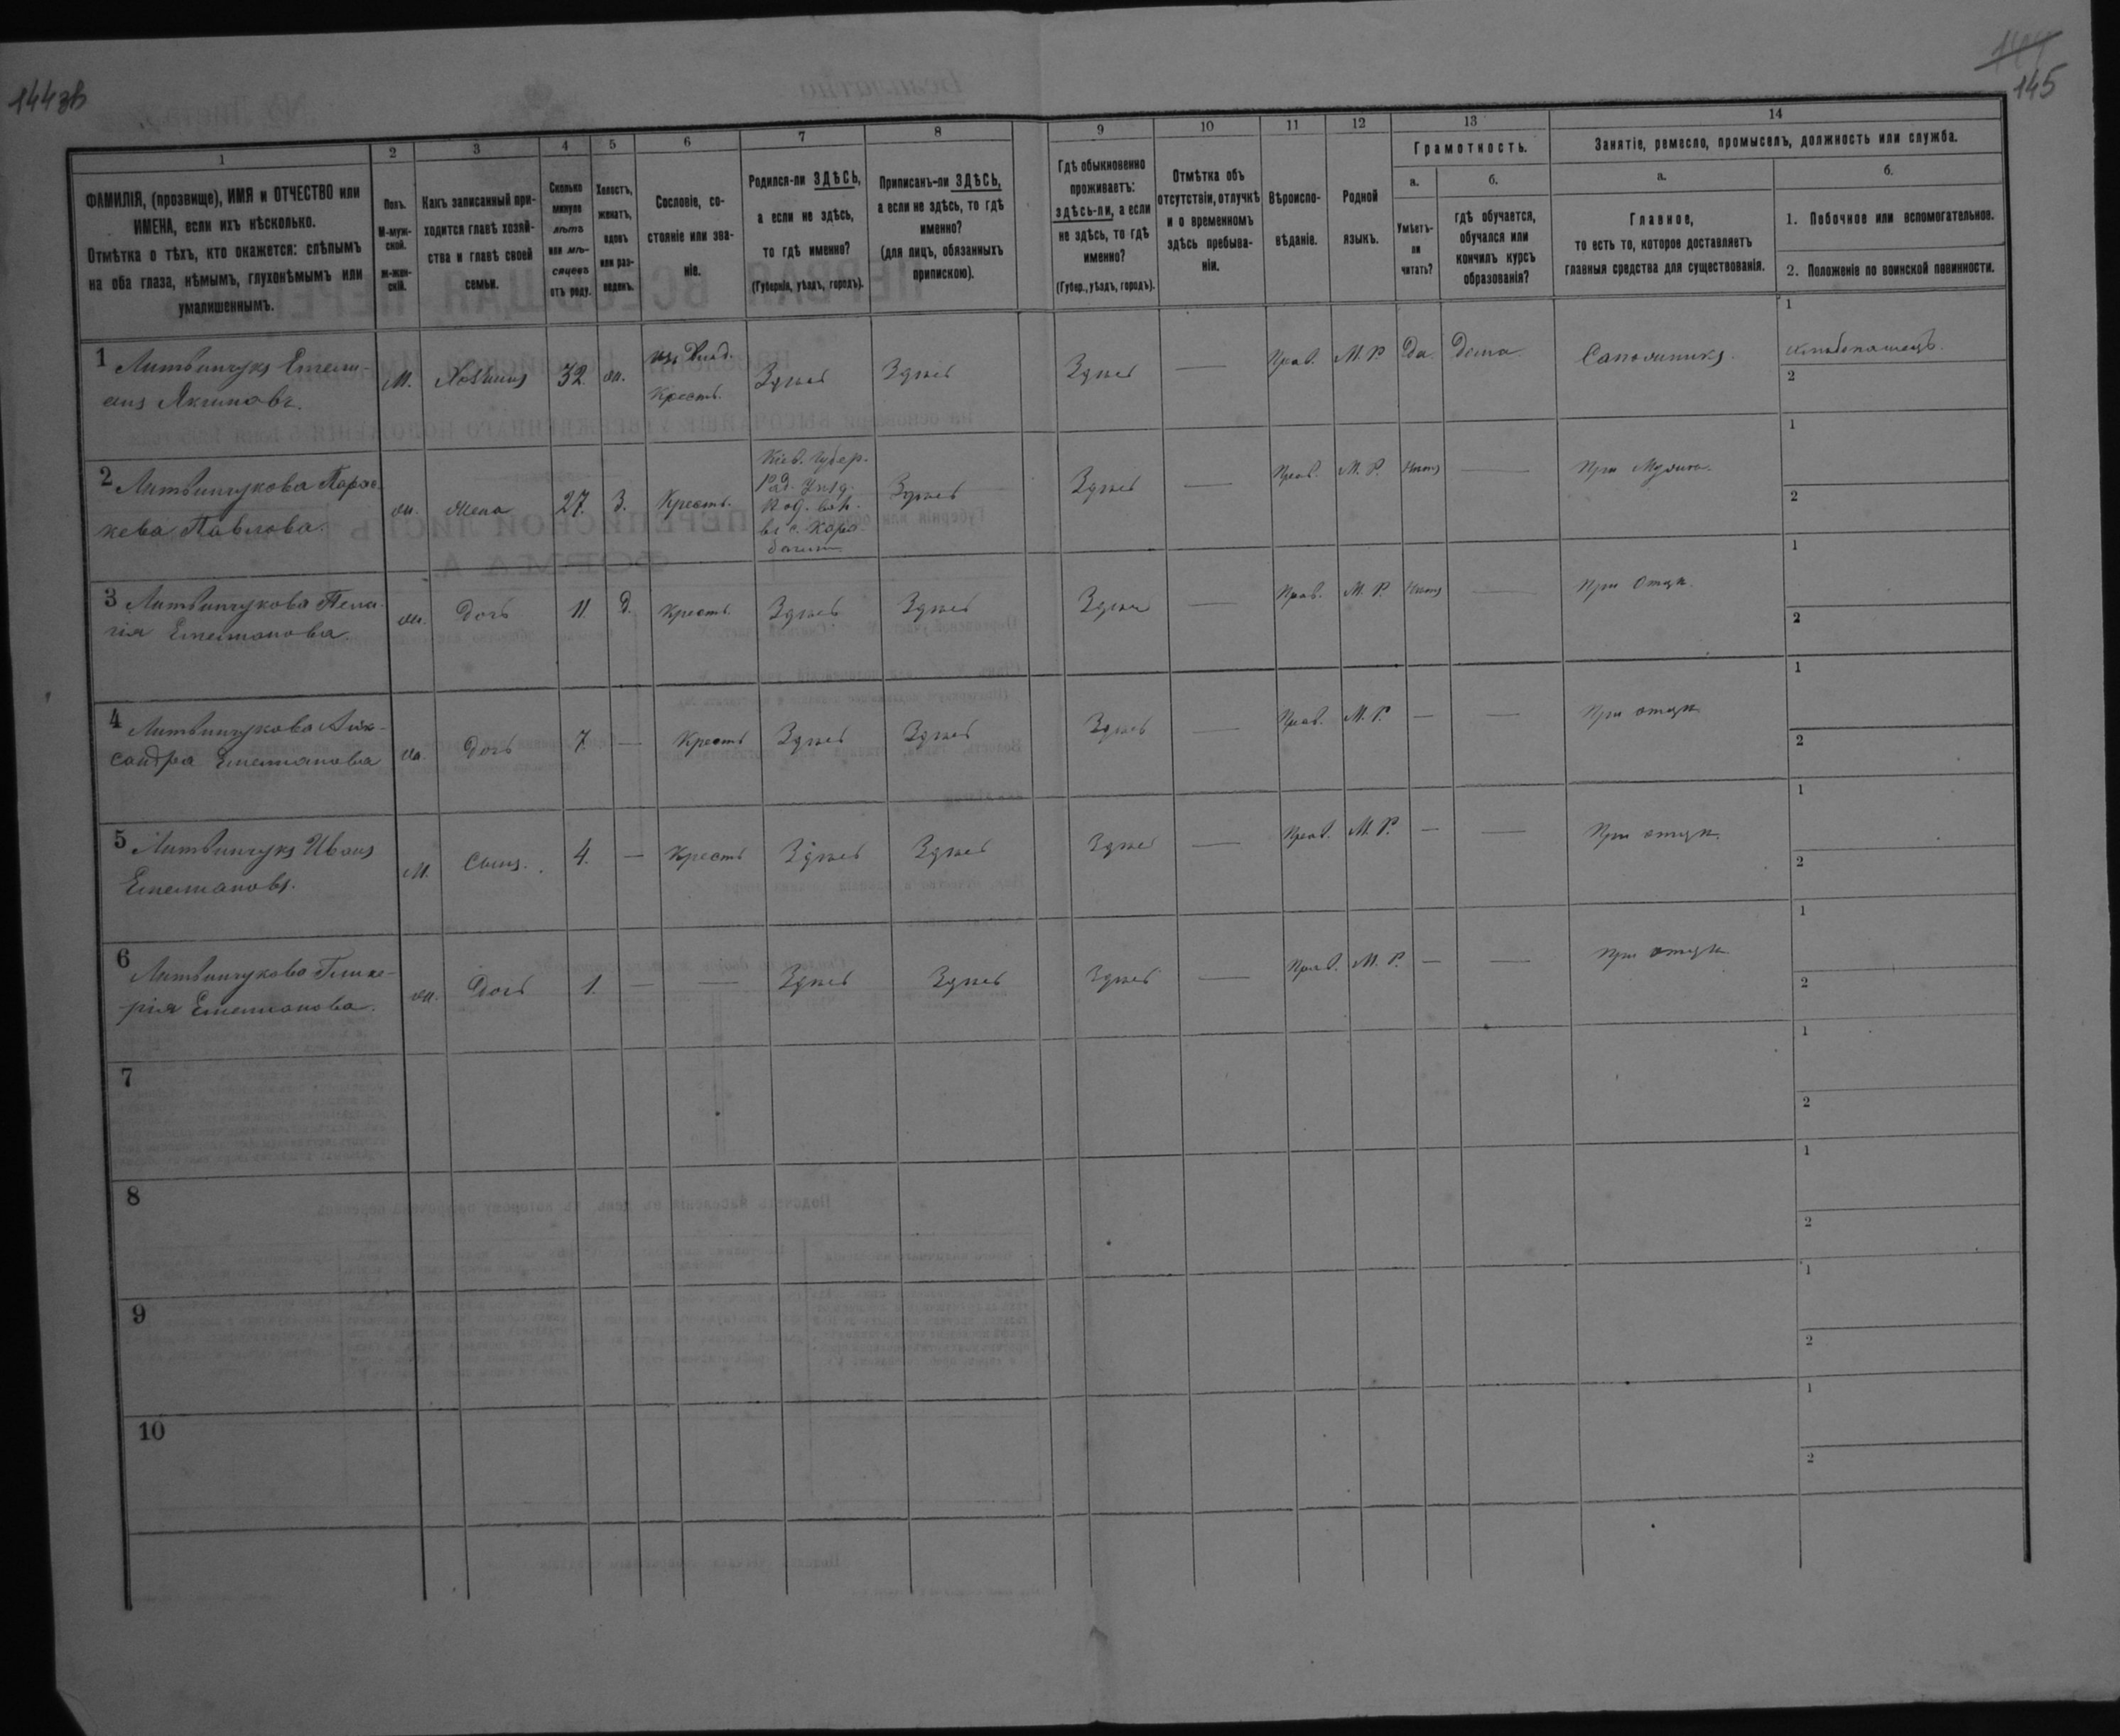 144зв
144
145
1 2 3 4 5 6 7 8 9 10 11 12 13 14
ФАМИЛІЯ, (прозвище), ИМЯ и ОТЧЕСТВО или
ИМЕНА, если ихъ нѣсколько.
Отмѣтка о тѣхъ, кто окажется: слѣпымъ
на оба глаза, нѣмымъ, глухонѣмымъ или
умалишеннымъ.
Полъ.
М-муж-
ской.
Ж-жен-
скій.
Какъ записанный при-
ходится главѣ хозяй-
ства и главѣ своей
семьи.
Сколько
минуло
лѣтъ
или мѣ-
сяцевъ
отъ роду.
Холостъ,
женатъ,
вдовъ
или раз-
веденъ.
Сословіе, со-
стояніе или зва-
ніе.
Родился-ли ЗДѢСЬ,
а если не здѣсь,
то гдѣ именно?
(Губернія, уѣздъ, городъ).
Приписанъ-ли ЗДѢСЬ,
а если не здѣсь, то гдѣ
именно?
(для лицъ, обязанныхъ
припискою).
Гдѣ обыкновенно
проживаетъ:
здѣсь-ли, а если
не здѣсь, то гдѣ
именно?
(Губер., уѣздъ, городъ).
Отмѣтка объ
отсутствіи, отлучкѣ
и о временномъ
здѣсь пребыва-
ніи.
Вѣроиспо-
вѣданіе.
Родной
языкъ.
Грамотность.
а.
Умѣетъ-
ли
читать?
б.
гдѣ обучается,
обучался или
кончилъ курсъ
образованія?
Занятіе, ремесло, промыселъ, должность или служба.
а.
Главное,
то есть то, которое доставляетъ
главныя средства для существованія.
б.
1. Побочное или вспомогательное.
2. Положеніе по воинской повинности.
1 Литвинчукъ Емель-
янъ Якимовъ.
М. Хозяинъ 32. ж. Крестъ. Здѣсь Здѣсь Здѣсь — Прав. М. Р. Да Дома Сапожникъ. 1 Хлѣбопашецъ.
2
2 Литвинчукова Парас-
кева Павлова.
ж. жена 27. З. Крестъ.
Кіев. Губер.
Рад. Уѣзд.
Здѣсь Здѣсь — Прав. М. Р. Нѣтъ — При Мужѣ. 1
2
3 Литвинчукова Пела-
гія Емельянова
ж. Дочь 11. Д. Крест. Здѣсь Здѣсь Здѣсь — Прав. М. Р. Нѣтъ — При Отцѣ. 1
2
4 Литвинчукова Алек-
сандра Емельянова
ж. Дочь 7. — Крест Здѣсь Здѣсь Здѣсь — Прав. М. Р. — — При отцѣ 1
2
5 Литвинчукъ Иванъ
Емельяновъ.
М. Сынъ. 4. — Крест Здѣсь Здѣсь Здѣсь — Прав. М. Р. — — При отцѣ. 1
2
6 Литвинчукова Глике-
рія Емельянова.
ж. Дочь 1. — — Здѣсь Здѣсь Здѣсь — Прав. М. Р. — — При отцѣ 1
2
7 1
2
8 1
2
9 1
2
10 1
2